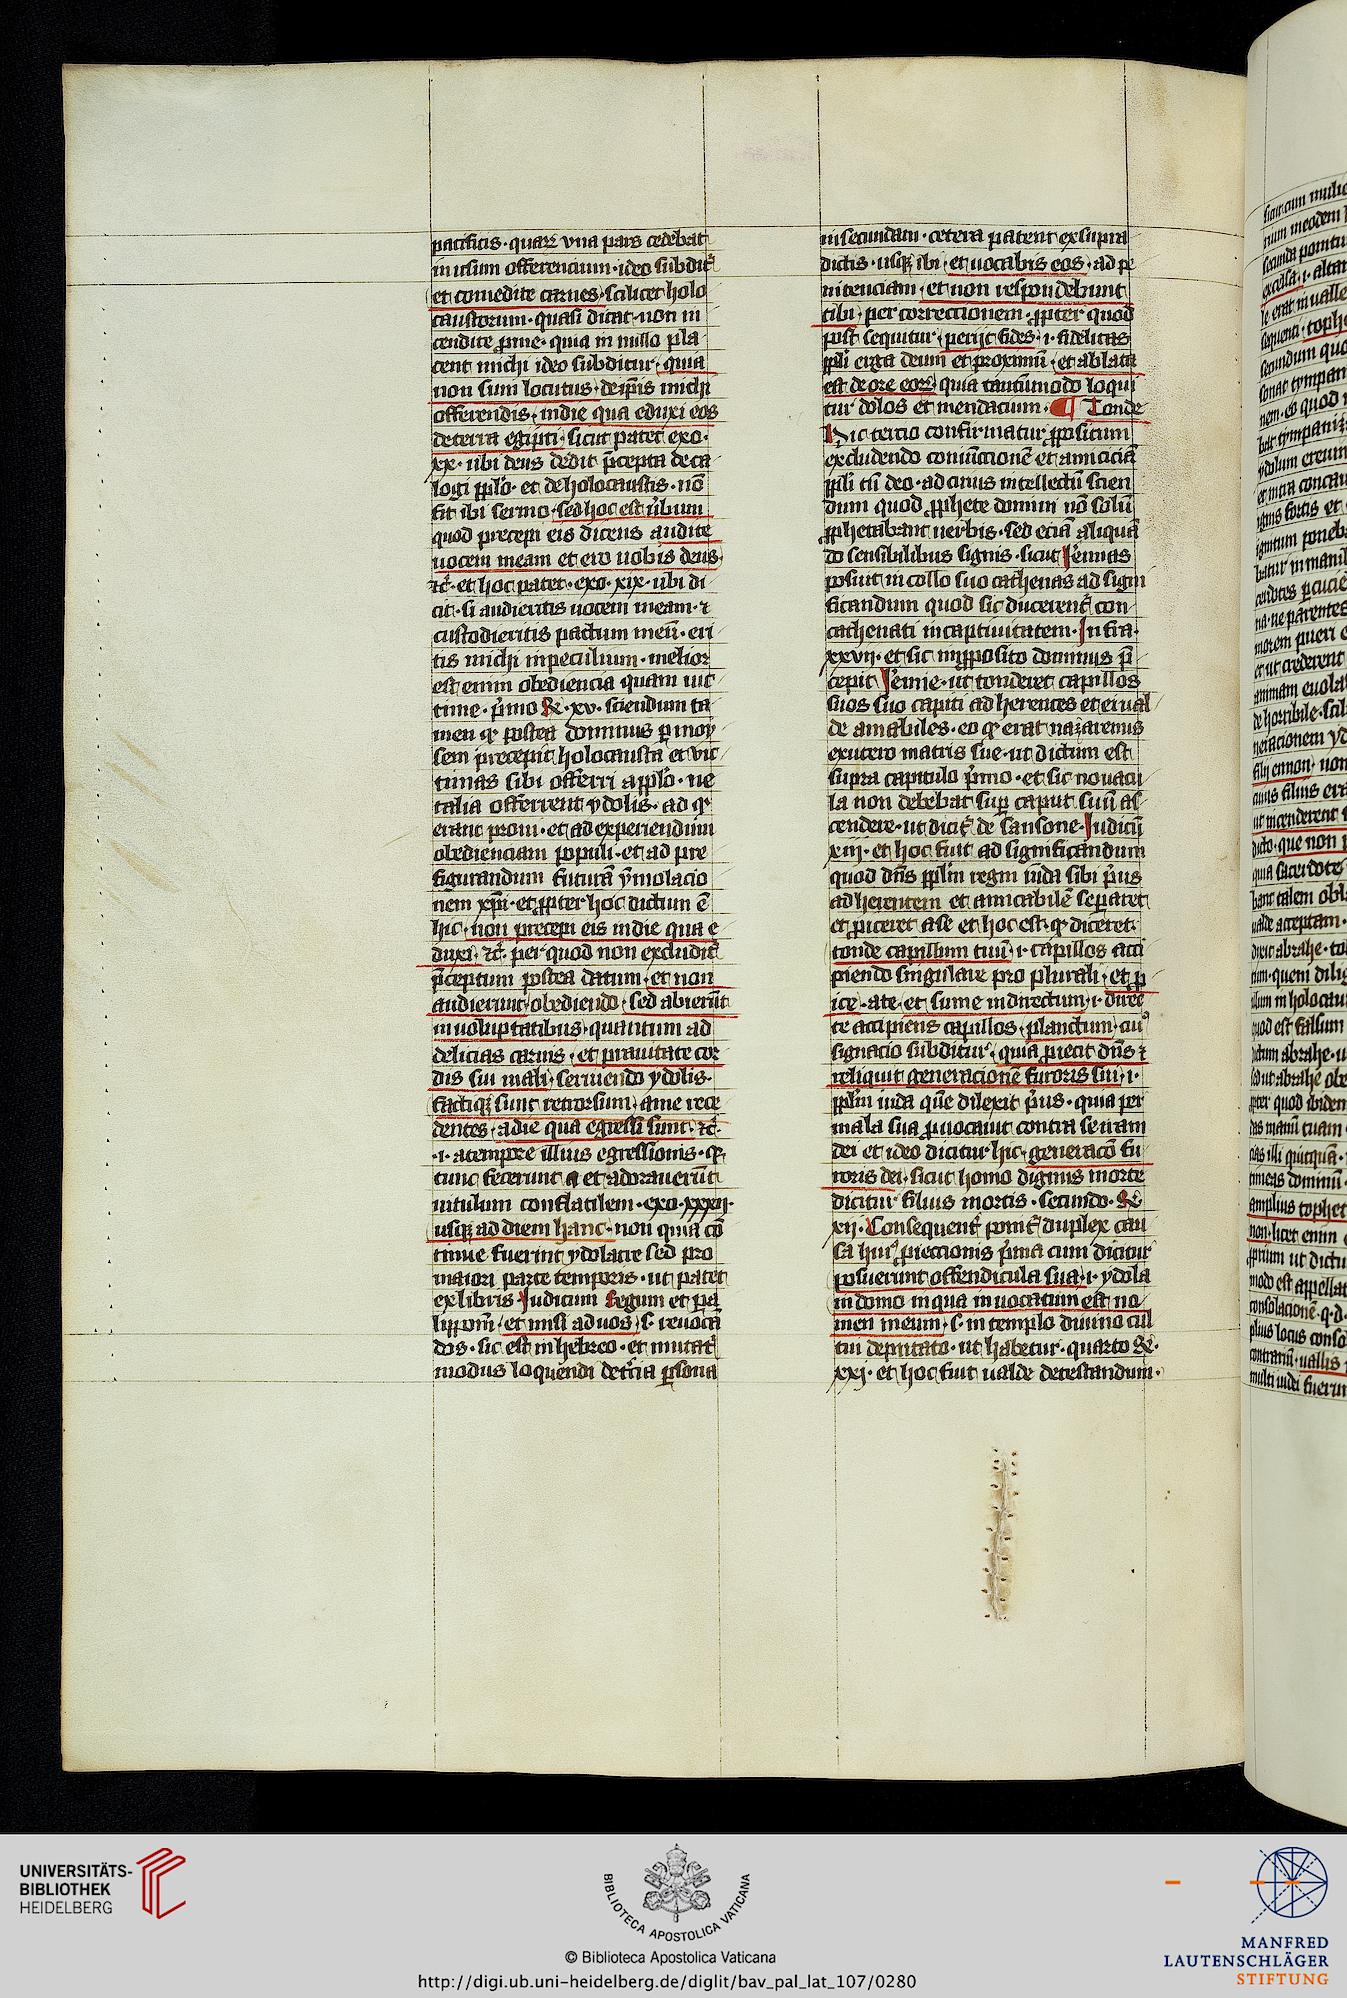 pacificis · quarum vna pars cedebat
in usum offerencium · ideo subditur
et comedite carnes · scilicet holo
caustorum · quasi dicat non in
cendite prome · quia in nullo pla
cent michi ideo subditur · quia
non sum locutus · de ipsis michi
offerendis · in die qua eduxi eos
de terra egipti · sicut patet exo ·
xx · ubi deus dedit precepta deca
logi populo · et de holocaustis · non
fit ibi sermo · sed hoc est verbum
quod precepi eis dicens audite
uocem meam et ero uobis deus ·
etc · et hoc patet · exo · xix · ubi di
cit · si audieritis uocem meam · et
custodieritis pactum meum · eri
tis michi in peculium · melior
est enim obediencia quam uic
time · primo Re · xv · sciendum ta
men quod postea dominus per moy
sem precepit holocausta et vic
timas sibi offerri a populo · ne
talia offerrent ydolis · ad que
erant proni · et ad experiendum
obedienciam populi · et ad pre
figurandum futuram ymolacio
nem christi · et propter hoc dictum est
hic · non precepi eis in die qua e
duxi · etc · per quod non excluditur
preceptum postea datum · et non
audierunt · obediendo · sed abierunt
in uoluptatibus · quantum ad
delicias carnis · et prauitate cor
dis sui mali · seruiendo ydolis ·
factique sunt retrorsum · a me rece
dentes · a die qua egressi sunt · etc ·
· i · a tempore illius egressionis · quia
tunc fecerunt et adorauerunt
uitulum conflatilem · exo · xxxii ·
usque ad diem hanc · non quia con
tinue fuerint ydolatre sed pro
maiori parte temporis · ut patet
ex libris Iudicum Regum et pa
lippom · et misi ad uos · s · reuocan
dos · sic est in hebreo · et mutatur
modus loquendi de tercia persona
in secundam · cetera patent ex supra
dictis · usque ibi · et uocabis eos · ad pe
nitenciam · et non respondebunt
tibi · per correctionem · propter quod
post sequitur · perijt fides · i · fidelitas
populi erga deum et proximum · et ablata
est de ore eorum · quia tantummodo loqui
tur dolos et mendacium · ¶ Tonde
Hic tercio confirmatur propositum
excludendo coniunctionem et amiciciam
populi cum deo · ad cuius intellectum scien
dum quod prophete domini non solum
prophetabant uerbis · sed eciam aliquan
do sensibilibus signis · sicut Ieremias
posuit in collo suo cathenas ad signi
ficandum quod sic ducerentur con
cathenati in captiuitatem · Infra ·
xxvii · et sic in proposito dominus pre
cepit Ieremie · ut tonderet capillos
suos suo capiti adherentes et ei ual
de amabiles · eo quod erat nazareus
ex utero matris sue · ut dictum est
supra capitulo primo · et sic nouacu
la non debebat super caput suum as
cendere · ut dicitur de sansone · Iudicum
xiij · et hoc fuit ad significandum
quod dominus populum regni iuda sibi prius
adherentem et amicabilem separaret
et proiceret a se et hoc est · quod diceret ·
tonde capillum tuum · i · capillos acci
piendo singulare pro plurali · et pro
ice · a te · et sume in directum · i · direc
te accipiens capillos · planctum · cuius
signacio subditur · quia proiecit dominus et
reliquit generacionem furoris sui · i ·
populum iuda quem dilexit prius · quia per
mala sua prouocauit contra se iram
dei et ideo dicitur hic · generacio fu
roris dei · sicut homo dignus morte
dicitur filius mortis · secundo · Re ·
xii · Consequenter ponitur duplex cau
sa huius proiectionis prima cum dicitur
posuerunt offendicula sua · i · ydola
in domo in qua inuocatum est no
men meum · s · in templo diuino cul
tui deputato · ut habetur · quarto Re ·
xxj · et hoc fuit ualde detestandum ·
UNIVERSITÄTS-
BIBLIOTHEK
HEIDELBERG
BIBLIOTECA APOSTOLICA VATICANA
© Biblioteca Apostolica Vaticana
http://digi.ub.uni-heidelberg.de/diglit/bav_pal_lat_107/0280
MANFRED
LAUTENSCHLÄGER
STIFTUNG